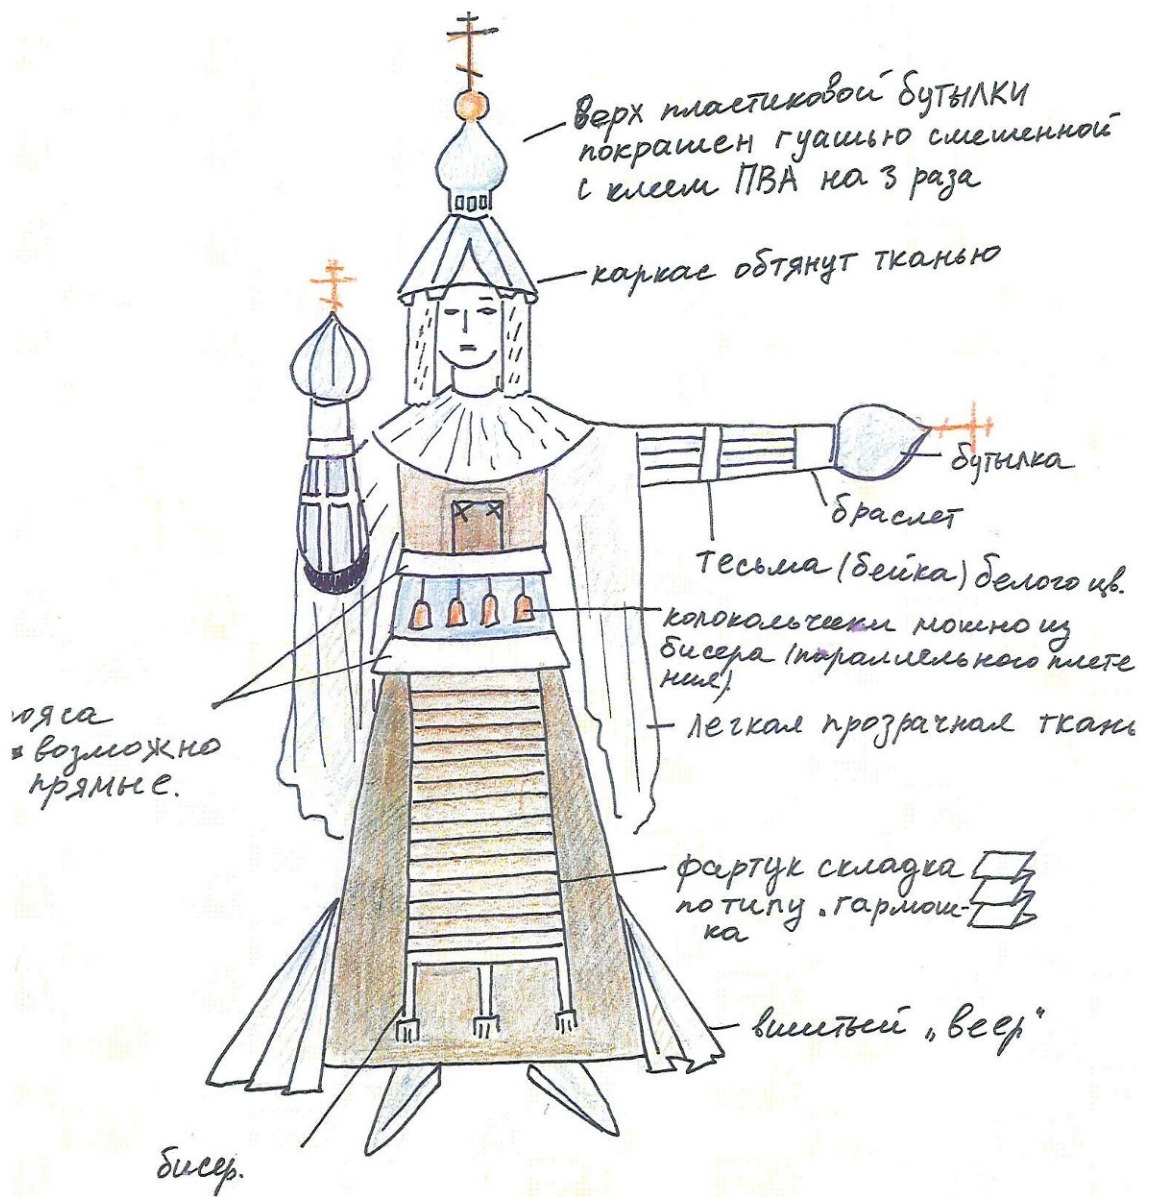 верх пластиковой бутылки
покрашен гуашью смешенной
с клеем ПВА на 3 раза
каркас обтянут тканью
бутылка
браслет
тесьма (бейка) белого цв.
колокольчики можно из
бисера (параллельного плете
ния)
легкая прозрачная ткань
пояса
возможно
прямые.
фартук складка
по типу „гармош-
ка
вшитый „веер"
бисер.